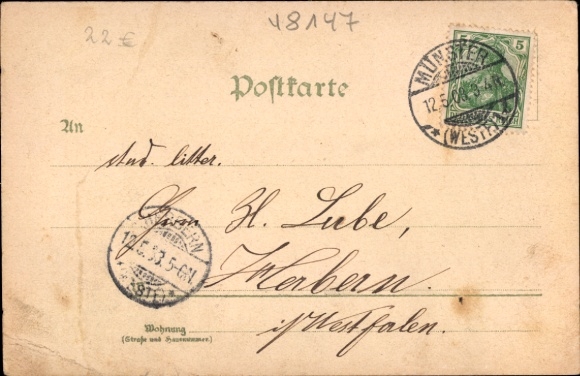 22 €
48147
5 5
MÜNSTER
12.5.03.
(WESTF.)
Postkarte
An
stud. litter.
H. Lube,
HERBERN
12.5.03.5-6N.
Herbern.
i/Westfalen.
Wohnung
(Straße und Hausnummer)